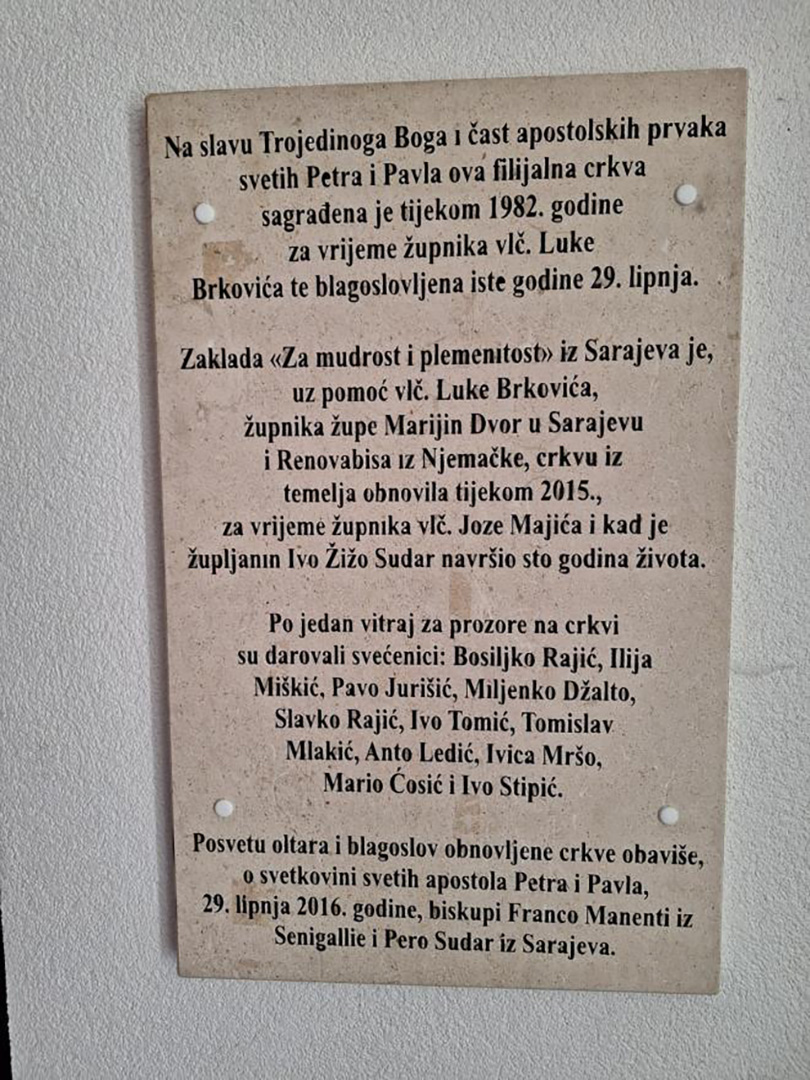 Na slavu Trojedinoga Boga i čast apostolskih prvaka
svetih Petra i Pavla ova filijalna crkva
sagrađena je tijekom 1982. godine
za vrijeme župnika vlč. Luke
Brkovića te blagoslovljena iste godine 29. lipnja.
Zaklada «Za mudrost i plemenitost» iz Sarajeva je,
uz pomoć vlč. Luke Brkovića,
župnika župe Marijin Dvor u Sarajevu
i Renovabisa iz Njemačke, crkvu iz
temelja obnovila tijekom 2015.,
za vrijeme župnika vlč. Joze Majića i kad je
župljanin Ivo Žižo Sudar navršio sto godina života.
Po jedan vitraj za prozore na crkvi
su darovali svećenici: Bosiljko Rajić, Ilija
Miškić, Pavo Jurišić, Miljenko Džalto,
Slavko Rajić, Ivo Tomić, Tomislav
Mlakić, Anto Ledić, Ivica Mršo,
Mario Ćosić i Ivo Stipić.
Posvetu oltara i blagoslov obnovljene crkve obaviše,
o svetkovini svetih apostola Petra i Pavla,
29. lipnja 2016. godine, biskupi Franco Manenti iz
Senigallie i Pero Sudar iz Sarajeva.